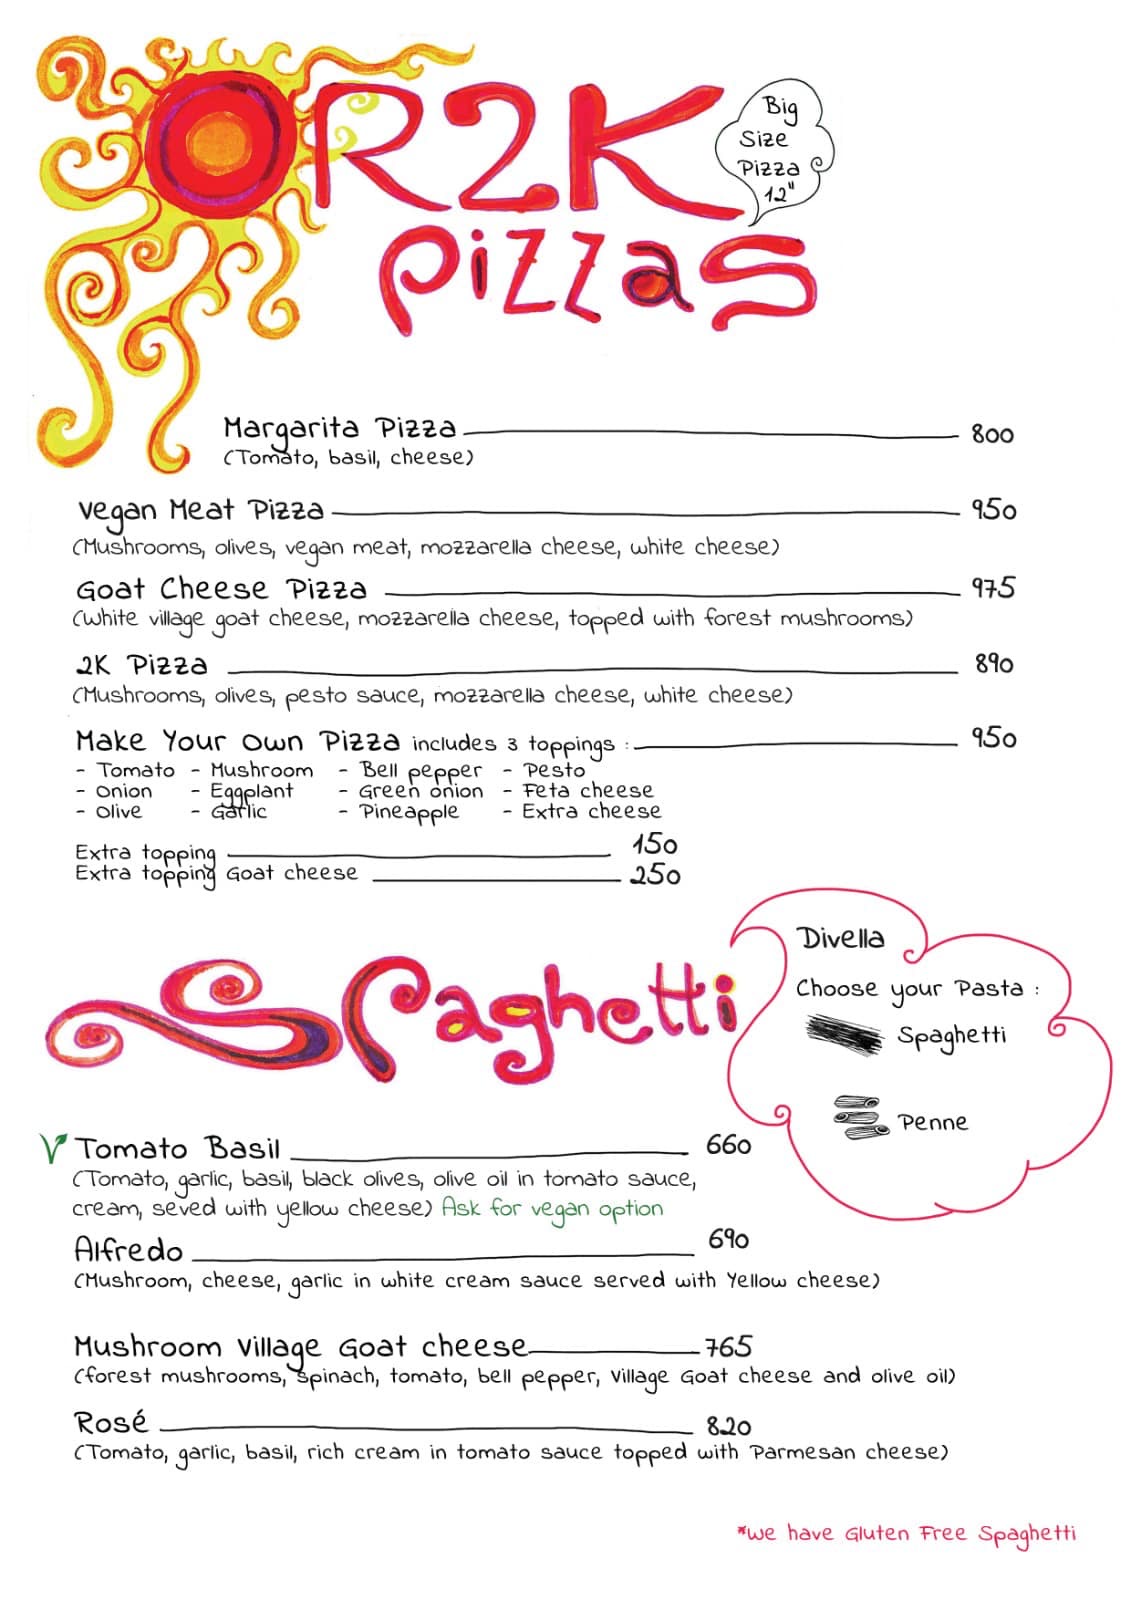 OR2K
Pizzas
Big
Size
Pizza
12"
Margarita Pizza 800
(Tomato, basil, cheese)
Vegan Meat Pizza 950
(Mushrooms, olives, vegan meat, mozzarella cheese, white cheese)
Goat Cheese Pizza 975
(White village goat cheese, mozzarella cheese, topped with forest mushrooms)
2K Pizza 890
(Mushrooms, olives, pesto sauce, mozzarella cheese, white cheese)
Make Your Own Pizza includes 3 toppings : 950
- Tomato - Mushroom - Bell pepper - Pesto
- Onion - Eggplant - Green onion - Feta cheese
- Olive - Garlic - Pineapple - Extra cheese
Extra topping 150
Extra topping Goat cheese 250
Spaghetti
Divella
Choose your Pasta :
Spaghetti
Penne
V Tomato Basil 660
(Tomato, garlic, basil, black olives, olive oil in tomato sauce,
cream, seved with yellow cheese) Ask for vegan option
Alfredo 690
(Mushroom, cheese, garlic in white cream sauce served with Yellow cheese)
Mushroom Village Goat cheese 765
(forest mushrooms, spinach, tomato, bell pepper, Village Goat cheese and olive oil)
Rosé 820
(Tomato, garlic, basil, rich cream in tomato sauce topped with Parmesan cheese)
*We have Gluten Free Spaghetti